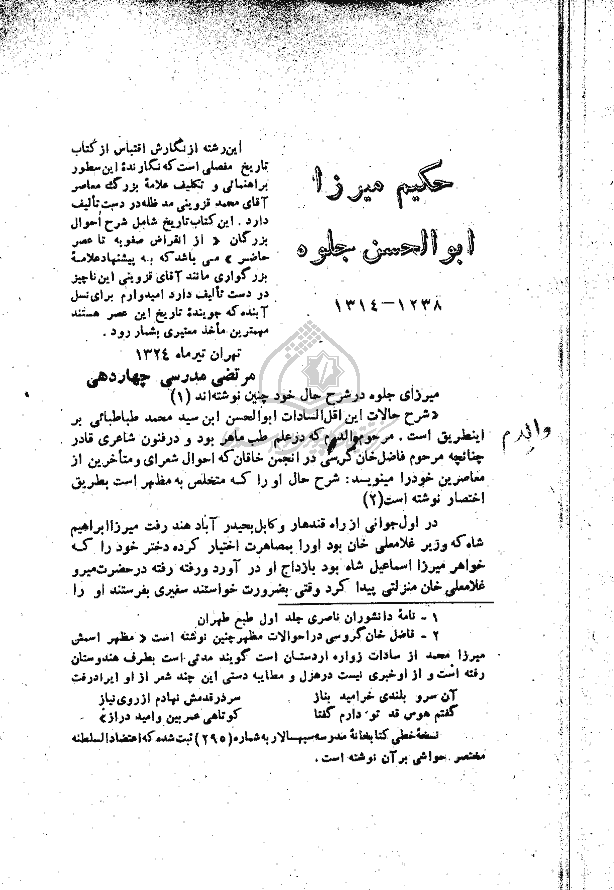 حکیم میرزا
ابوالحسن جلوه
۱۲۳۸–۱۳۱۴
این رشته از نگارش اقتباس از کتاب
تاریخ مفصلی است که نگارندهٔ این سطور
براهنمائی و تکلیف علامهٔ بزرگ معاصر
آقای محمد قزوینی مد ظله در دست تألیف
دارد . این کتاب تاریخ شامل شرح احوال
بزرگان « از انقراض صفویه تا عصر
حاضر » می باشد که به پیشنهاد علامهٔ
بزرگواری مانند آقای قزوینی این ناچیز
در دست تألیف دارد امیدوارم برای نسل
آینده که جویندهٔ تاریخ این عصر هستند
مهمترین مأخذ معتبری بشمار رود .
تهران تیرماه ۱۳۲۴
مرتضی مدرسی چهاردهی
میرزای جلوه در شرح حال خود چنین نوشته‌اند (۱)
«شرح حالات این اقل السادات ابوالحسن ابن سید محمد طباطبائی بر
اینطریق است . مرحوم والدم که در علم طب ماهر بود و در فنون شاعری قادر
والدم
چنانچه مرحوم فاضل خان گرسی در انجمن خاقان که احوال شعرای و متأخرین از
معاصرین خود را مینویسد: شرح حال او را که متخلص به مظهر است بطریق
اختصار نوشته است(۲)
در اول جوانی از راه قندهار و کابل بحیدر آباد هند رفت میرزا ابراهیم
شاه که وزیر غلامعلی خان بود اورا بمصاهرت اختیار کرده دختر خود را که
خواهر میرزا اسماعیل شاه بود بازداج او در آورد ورفته رفته در حضرت میرو
غلامعلی خان منزلتی پیدا کرد وقتی بضرورت خواستند سفیری بفرستند او را
۱ – نامهٔ دانشوران ناصری جلد اول طبع طهران
۲ – فاضل خان گروسی در احوالات مظهر چنین نوشته است « مظهر اسمش
میرزا محمد از سادات زواره اردستان است گویند مدتی است بطرف هندوستان
رفته است و از او خبری نیست در هزل و مطایبه دستی این چند شعر از او ایراد رفت
آن سرو بلندی خرامید بناز سر در قدمش نهادم از روی نیاز
گفتم هوس قد تو دارم گفتا کوتاهی عمر بین و امید دراز»
نسخهٔ خطی کتابخانهٔ مدرسه سپهسالار به شماره (۲۹۵) ثبت شده که اعتضادالسلطنه
مختصر حواشی بر آن نوشته است .